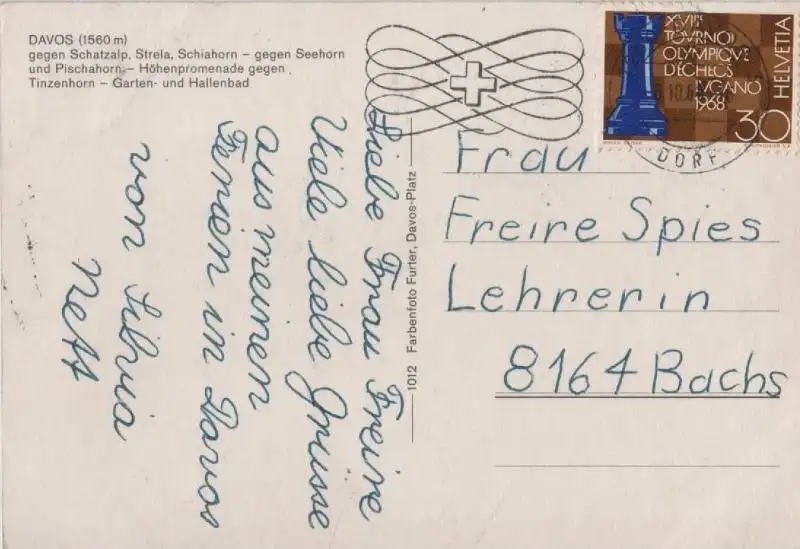 DAVOS (1560 m)
gegen Schatzalp, Strela, Schiahorn – gegen Seehorn
und Pischahorn – Höhenpromenade gegen
Tinzenhorn – Garten- und Hallenbad
XVIII
TOURNOI
OLYMPIQUE
D'ECHECS
LUGANO
1968
HELVETIA
30
DORF
Liebe Frau Freire
Viele liebe Grüsse
aus meinen
Ferien in Davos
von Silvia
Nett
1012 Farbenfoto Furter, Davos-Platz
Frau
Freire Spies
Lehrerin
8164 Bachs